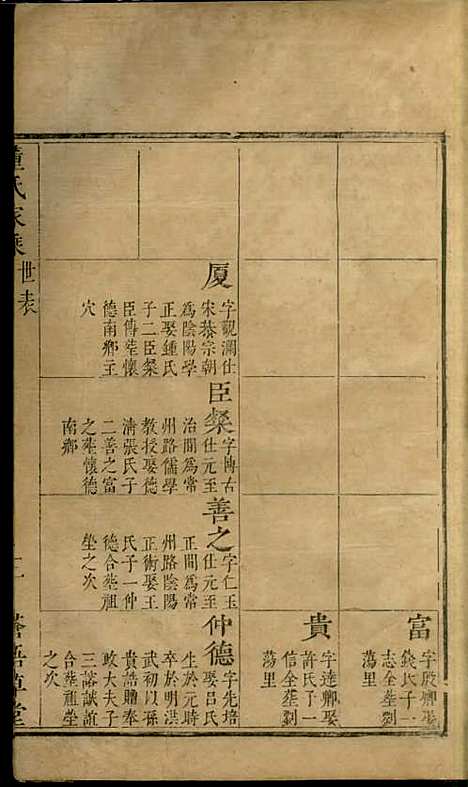 厦
字觀瀾仕
宋恭宗朝
為陰陽學
正娶鍾氏
子二臣粲
臣傳塟懷
德南鄉王
穴
臣粲
字博古
仕元至
治間為常
州路儒學
教授娶德
清張氏子
二善之富
之塟懷德
南鄉
善之
字仁玉
仕元至
正間為常
州路陰陽
正術娶王
氏子一仲
德合塟祖
塋之次
富
字殷卿娶
錢氏子一
志全塟劉
蕩里
貴
字達卿娶
許氏子一
信全塟劉
蕩里
仲德
字先培
娶呂氏
生於元時
卒於明洪
武初以孫
貴誥贈奉
政大夫子
三諮諴誼
合塟祖塋
之次
氏家乘
世表
草堂